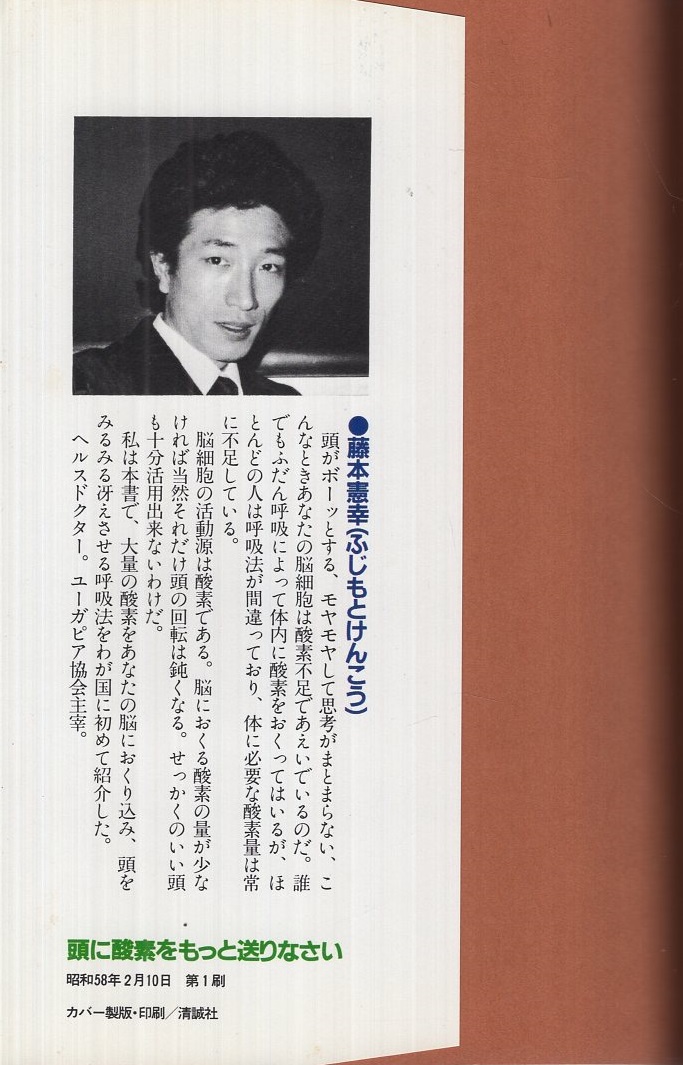 ●藤本憲幸(ふじもとけんこう)
頭がボーッとする、モヤモヤして思考がまとまらない、こ
んなときあなたの脳細胞は酸素不足であえいでいるのだ。誰
でもふだん呼吸によって体内に酸素をおくってはいるが、ほ
とんどの人は呼吸法が間違っており、体に必要な酸素量は常
に不足している。
脳細胞の活動源は酸素である。脳におくる酸素の量が少な
ければ当然それだけ頭の回転は鈍くなる。せっかくのいい頭
も十分活用出来ないわけだ。
私は本書で、大量の酸素をあなたの脳におくり込み、頭を
みるみる冴えさせる呼吸法をわが国に初めて紹介した。
ヘルスドクター。ユーガピア協会主宰。
頭に酸素をもっと送りなさい
昭和58年2月10日 第1刷
カバー製版・印刷/清誠社